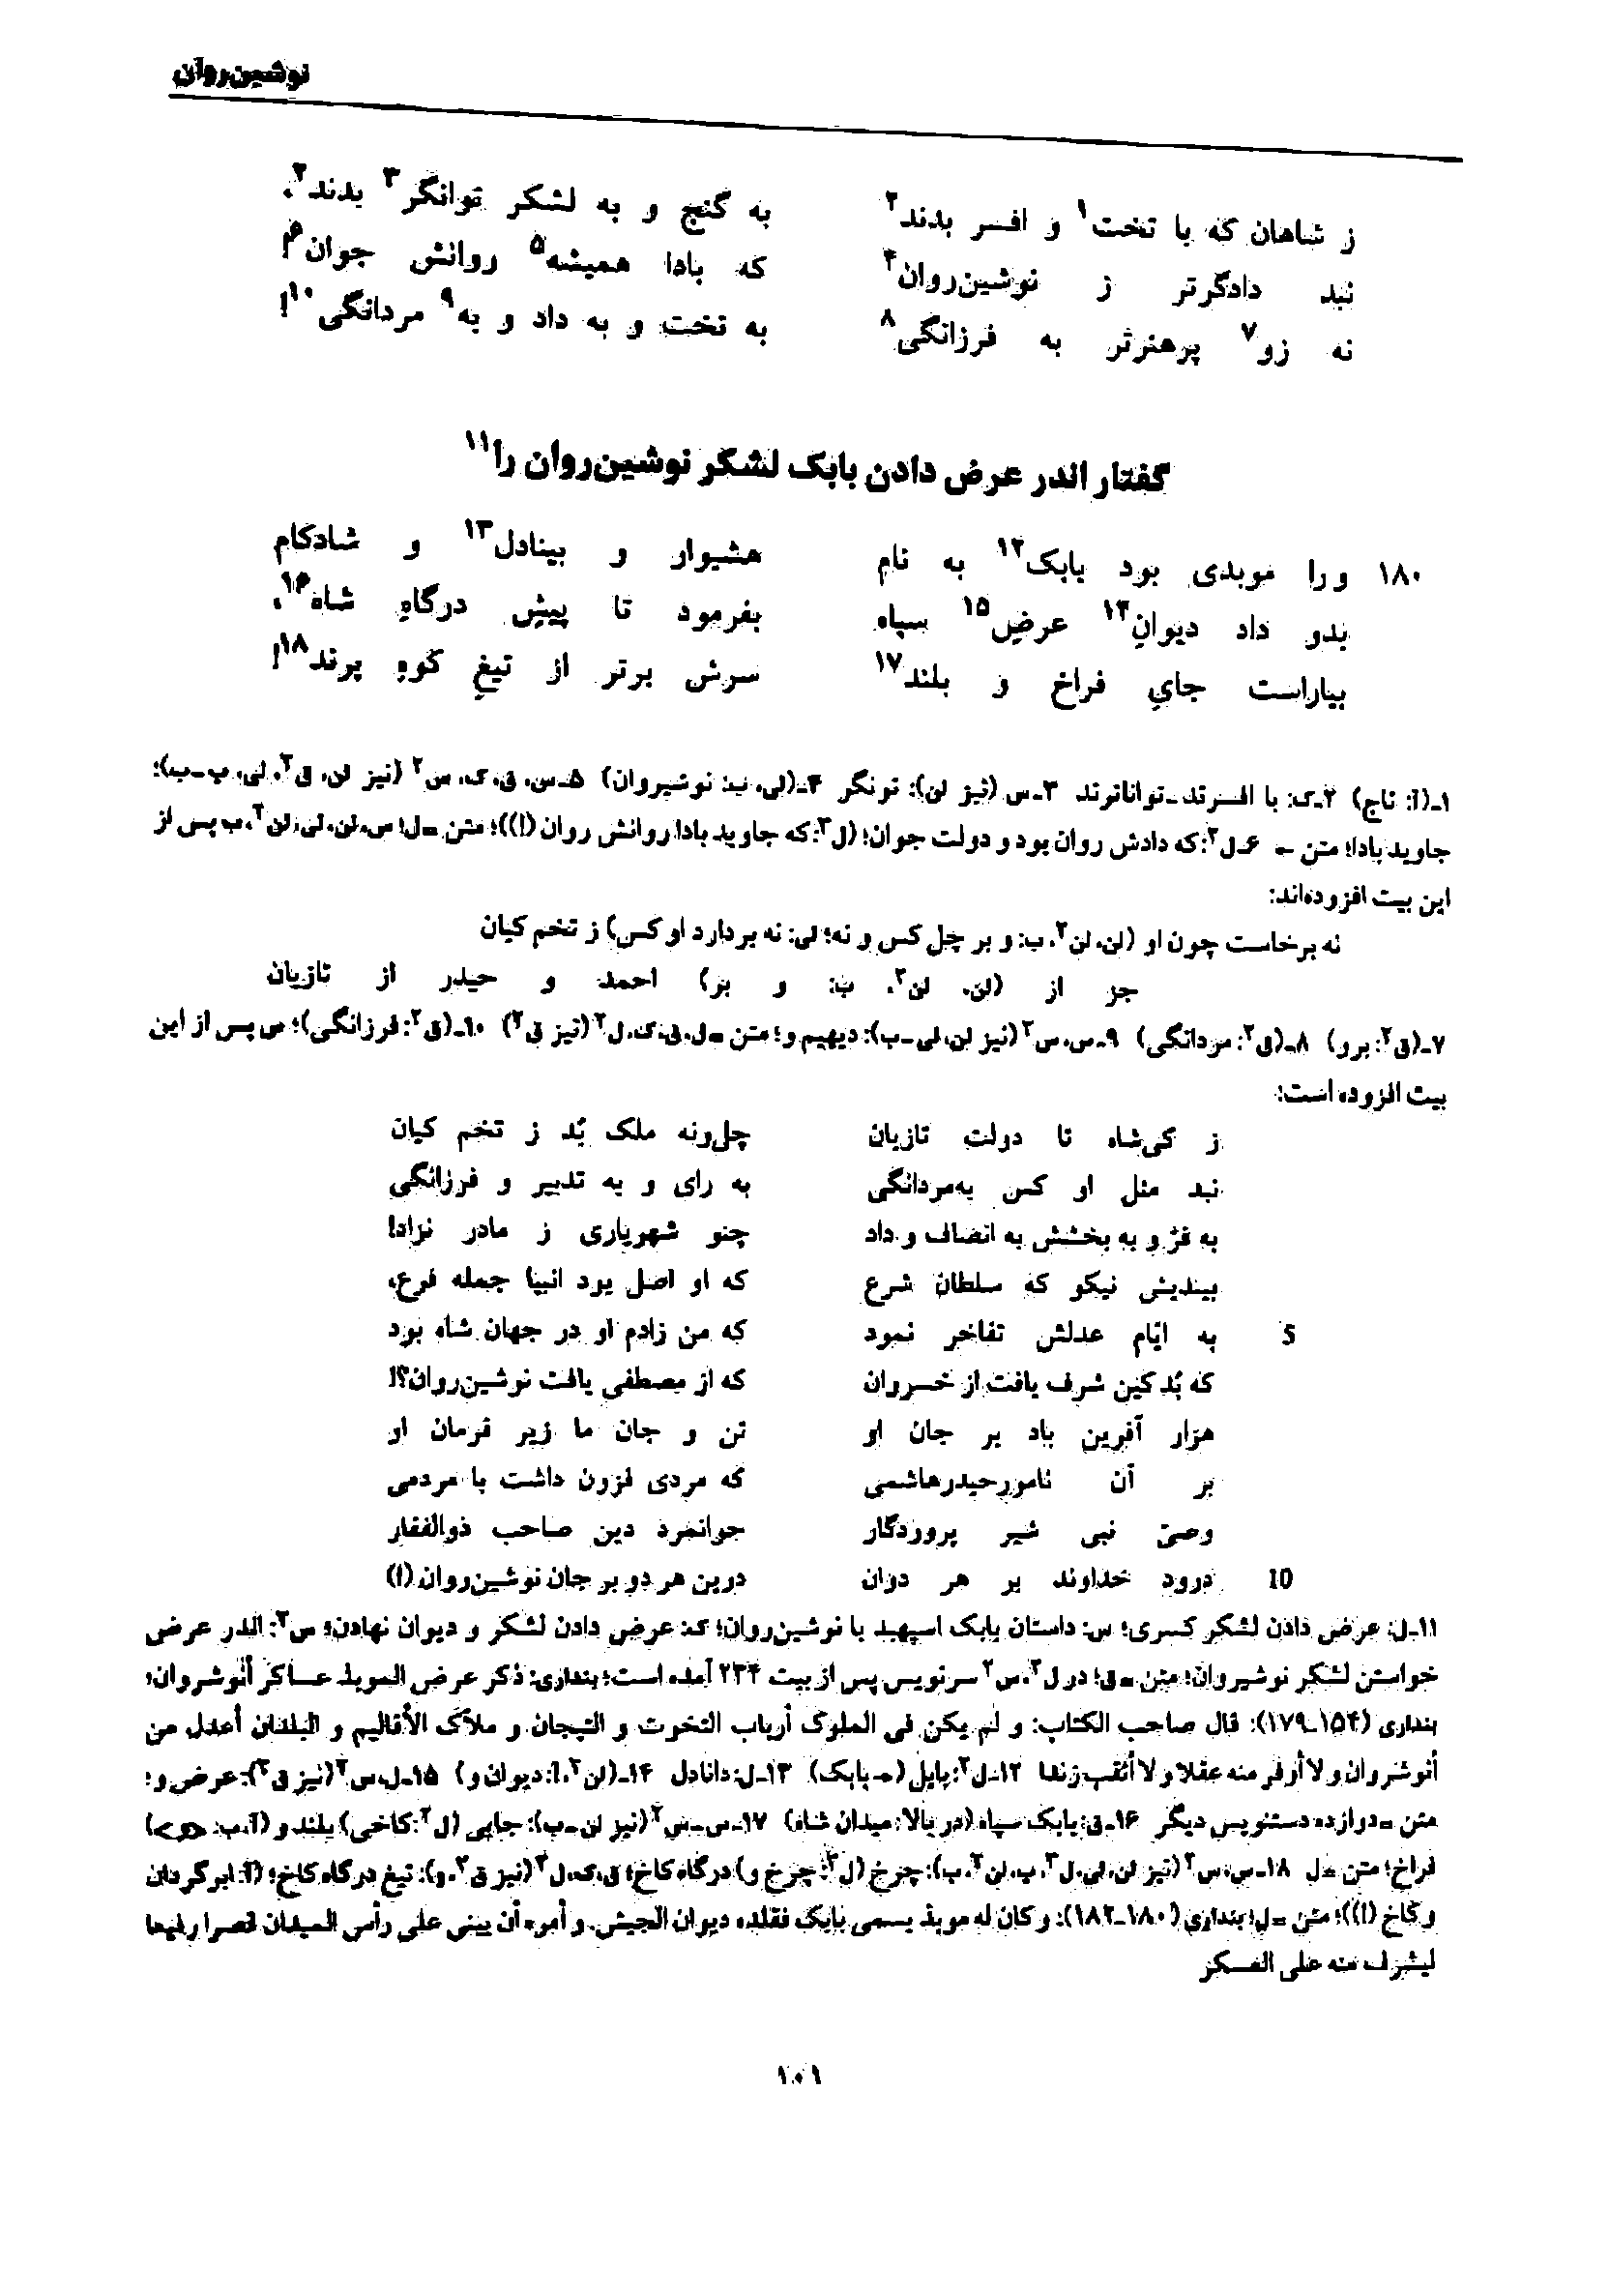 نوشین‌روان
ز شاهان که با تخت۱ و افسر بدند۲ به گنج و به لشکر توانگر۳ بدند۲،
نبد دادگرتر ز نوشین‌روان۴ که بادا همیشه۵ روانش جوان۶!
نه زو۷ پرهنرتر به فرزانگی۸ به تخت و به داد و به۹ مردانگی۱۰!
گفتار اندر عرض دادن بابک لشگر نوشین‌روان را۱۱
۱۸۰ ورا موبدی بود بابک۱۲ به نام هشیوار و بینادل۱۳ و شادکام
بدو داد دیوانِ۱۴ عرضِ۱۵ سپاه بفرمود تا پیشِ درگاهِ شاه۱۶،
بیاراست جایِ فراخ و بلند۱۷ سرش برتر از تیغِ کوهِ پرند۱۸!
۱ـ(آ: تاج) ۲ـ ک: با افسرند ـ تواناترند ۳ـ س (نیز لن): تونگر ۴ـ (لی، ب: نوشیروان) ۵ـ س، ق، ک، س۲ (نیز لن، ق۲، لی، پ ـ ب):
جاوید بادا؛ متن ← ۶ـ ل۲: که دادش روان بود و دولت جوان؛ (ل۳: که جاوید بادا روانش روان (!))؛ متن = ل؛ س، لن، لی، لن۲، ب پس از
این بیت افزوده‌اند:
نه برخاست چون او (لن، لن۲، ب: و بر چل کس و نه؛ لی: نه بردارد او کس) ز تخم کیان
جز از (لن، لن۲، ب: و بر) احمد و حیدر از تازیان
۷ـ(ق۲: برو) ۸ـ(ق۲: مردانگی) ۹ـ س، س۲ (نیز لن، لی ـ ب): دیهیم و؛ متن = ل، ق، ک، ل۲ (نیز ق۲) ۱۰ـ(ق۲: فرزانگی)؛ س پس از این
بیت افزوده است:
ز کی‌شاه تا دولت تازیان چل‌ونه ملک بُد ز تخم کیان
نبد مثل او کس به‌مردانگی به رای و به تدبیر و فرزانگی
به فرّ و به بخشش به انصاف و داد چنو شهریاری ز مادر نزاد!
بیندیش نیکو که سلطان شرع که او اصل بود انبیا جمله فرع،
5 به ایّام عدلش تفاخر نمود که من زادم او در جهان شاه بود
که بُد کین شرف یافت از خسروان که از مصطفی یافت نوشین‌روان؟!
هزار آفرین باد بر جان او تن و جان ما زیر فرمان او
بر آن نامور حیدر هاشمی که مردی فزون داشت با مردمی
وصیّ نبی شیر پروردگار جوانمرد دین صاحب ذوالفقار
10 درود خداوند بر هر دوان درین هر دو بر جان نوشین‌روان (!)
۱۱ـ ل: عرض دادن لشکر کسری؛ س: داستان بابک اسپهبد با نوشین‌روان؛ ک: عرض دادن لشکر و دیوان نهادن؛ س۲: اندر عرض
خواستن لشکر نوشیروان؛ متن = ق؛ در ل۲، س۲ سرنویس پس از بیت ۲۳۴ آمده است؛ بنداری: ذکر عرض الموبد عساکر أنوشروان؛
بنداری (۱۵۴ـ۱۷۹): قال صاحب الکتاب: و لم یکن فی الملوک أرباب التخوت و التیجان و ملاّک الأقالیم و البلدان أعدل من
أنوشروان و لا أوفر منه عقلا و لا أثقب زندا ۱۲ـ ل۲: پاپل (← بابک) ۱۳ـ ل: دانادل ۱۴ـ (لن۲، آ: دیوان و) ۱۵ـ ل، س۲ (نیز ق۲): عرض و؛
متن = دوازده دستنویس دیگر ۱۶ـ ق: بابک سپاه (در بالا: میدان شاه) ۱۷ـ س ـ س۲ (نیز لن ـ ب): جایی (ل۲: کاخی) بلند و (آ، ب: <و>)
فراخ؛ متن = ل ۱۸ـ س، س۲ (نیز لن، لی، ل۳، پ، لن۲، ب): چرخ (ل۳: چرخ و) درگاه کاخ؛ ق، ک، ل۲ (نیز ق۲، و): تیغ درگاه کاخ؛ (آ: ابر گردان
و کاخ (!))؛ متن = ل؛ بنداری (۱۸۰ـ۱۸۲): و کان له موبذ یسمی بابک فقلده دیوان الجیش. و أمره أن یبنی علی رأس المیدان قصرا رفیعا
لیشرف منه علی العسکر
۱۰۱